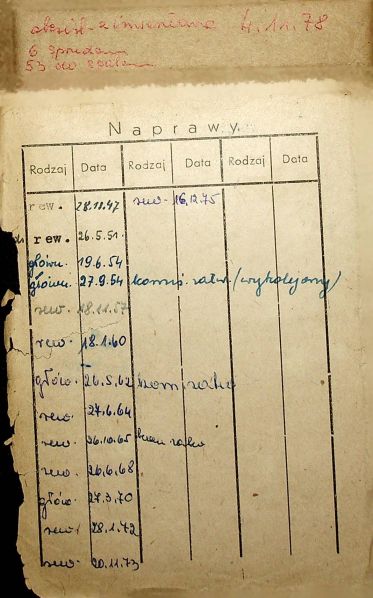 4.11.78
6
53 do
Naprawy
Rodzaj Data Rodzaj Data Rodzaj Data
rew. 28.11.47 rew. 16.12.75
rew. 26.5.51.
główn. 19.6.54
główn. 27.9.54 /wykolejony/
rew. 18.11.57
rew. 18.1.60
głów. 26.5.62
rew. 27.6.64
rew. 26.10.65
rew. 26.6.68
głów. 27.3.70
rew. 28.1.72
rew. 20.11.73